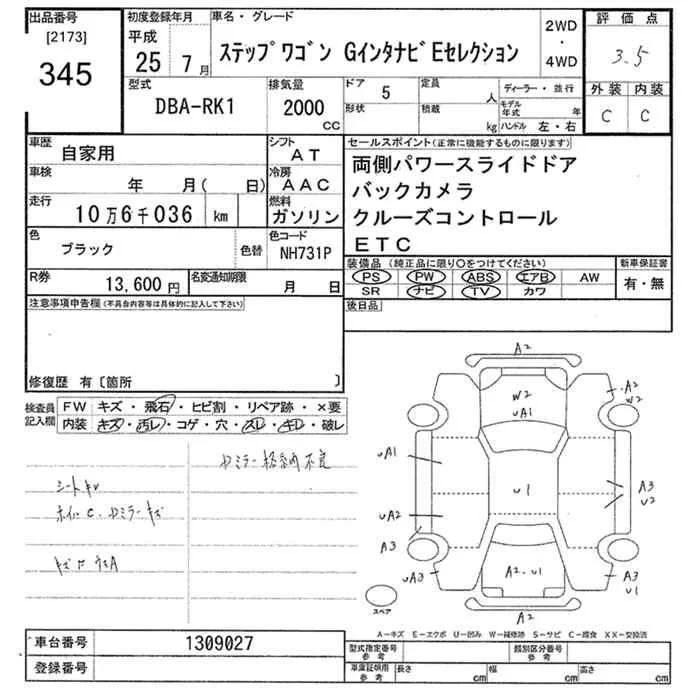 出品番号
[2173]
345
初度登録年月
平成
25 7月
車名・グレード
ステップワゴン GインタナビEセレクション
2WD
・
4WD
評価点
3.5
外装 内装
C C
型式
DBA-RK1
排気量
2000
CC
ドア
5
形状
定員
人
積載
kg
ディーラー・並行
モデル年式 年
ハンドル 左・右
車歴
自家用
シフト
AT
車検
年 月( 日)
冷房
AAC
走行
10万6千036 km
燃料
ガソリン
色
ブラック
色替
色コード
NH731P
R券
13,600円
名変通知期限
月 日
セールスポイント(正常に機能するものに限ります)
両側パワースライドドア
バックカメラ
クルーズコントロール
ETC
装備品 (純正品に限り○をつけてください)
PS PW ABS エアB AW
SR ナビ TV カワ
新車保証書
有・無
後日品
注意事項申告欄(不具合内容等は具体的に記入して下さい)
修復歴 有〔箇所 〕
検査員記入欄
FW キズ・飛石・ヒビ割・リペア跡・×要
内装 キズ・汚レ・コゲ・穴・スレ・キレ・破レ
シートキレ
A2
W2
uA1
A2
W2
uA1
u1
A3
u2
uA2
A3
uA3
A2.u1
A3
u1
スペア
A-キズ E-エクボ U-凹み W-補修跡 S-サビ C-腐食 XX-交換済
車台番号
1309027
登録番号
型式指定番号
参考
類別区分番号
参考
車庫証明用
参考
長さ cm 幅 cm 高さ cm